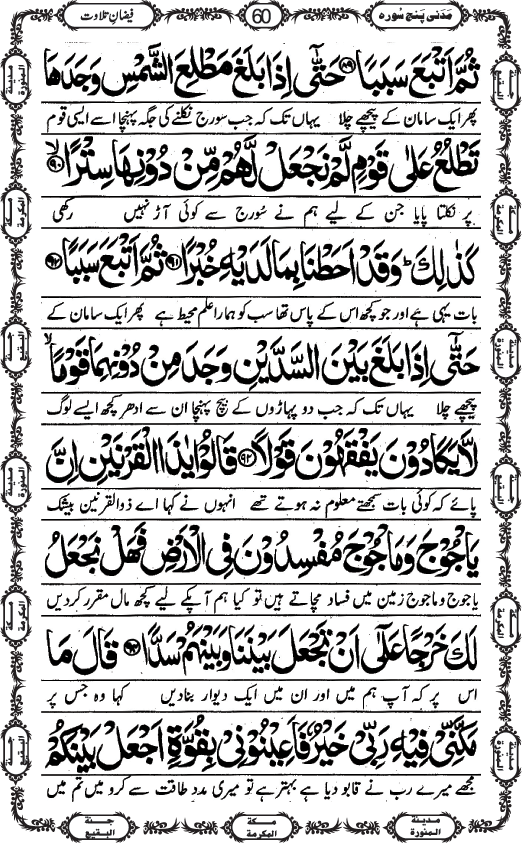 مَدَنی پنج سُورہ
60
فیضانِ تلاوت
ثُمَّ اَتْبَعَ سَبَبًا ﴿۸۹﴾ حَتّٰۤى اِذَا بَلَغَ مَطْلِعَ الشَّمْسِ وَجَدَهَا
پھر ایک سامان کے پیچھے چلا یہاں تک کہ جب سورج نکلنے کی جگہ پہنچا اسے ایسی قوم
تَطْلُعُ عَلٰى قَوْمٍ لَّمْ نَجْعَلْ لَّهُمْ مِّنْ دُوْنِهَا سِتْرًا ﴿۹۰﴾ۙ
پر نکلتا پایا جن کے لیے ہم نے سُورج سے کوئی آڑ نہیں رکھی
كَذٰلِكَ ؕ وَ قَدْ اَحَطْنَا بِمَا لَدَیْهِ خُبْرًا ﴿۹۱﴾ ثُمَّ اَتْبَعَ سَبَبًا ﴿۹۲﴾
بات یہی ہے اور جو کچھ اس کے پاس تھا سب کو ہمارا علم محیط ہے پھر ایک سامان کے
حَتّٰۤى اِذَا بَلَغَ بَیْنَ السَّدَّیْنِ وَجَدَ مِنْ دُوْنِهِمَا قَوْمًا ۙ
پیچھے چلا یہاں تک کہ جب دو پہاڑوں کے بیچ پہنچا ان سے ادھر کچھ ایسے لوگ
لَّا یَكَادُوْنَ یَفْقَهُوْنَ قَوْلًا ﴿۹۳﴾ قَالُوْا یٰذَا الْقَرْنَیْنِ اِنَّ
پائے کہ کوئی بات سمجھتے معلوم نہ ہوتے تھے انہوں نے کہا اے ذوالقرنین بیشک
یَاْجُوْجَ وَ مَاْجُوْجَ مُفْسِدُوْنَ فِی الْاَرْضِ فَهَلْ نَجْعَلُ
یاجوج و ماجوج زمین میں فساد مچاتے ہیں تو کیا ہم آپکے لیے کچھ مال مقرر کردیں
لَكَ خَرْجًا عَلٰۤى اَنْ تَجْعَلَ بَیْنَنَا وَ بَیْنَهُمْ سَدًّا ﴿۹۴﴾ قَالَ مَا
اس پر کہ آپ ہم میں اور ان میں ایک دیوار بنادیں کہا وہ جس پر
مَكَّنِّیْ فِیْهِ رَبِّیْ خَیْرٌ فَاَعِیْنُوْنِیْ بِقُوَّةٍ اَجْعَلْ بَیْنَكُمْ
مجھے میرے رب نے قابو دیا ہے بہتر ہے تو میری مدد طاقت سے کرو میں تم میں
مدینۃ المنورۃ
مکۃ المکرمۃ
جنۃ البقیع
مدینۃ المنورۃ
مکۃ المکرمۃ
جنۃ البقیع
جنۃ البقیع
مکۃ المکرمۃ
مدینۃ المنورۃ
جنۃ البقیع
مکۃ المکرمۃ
مدینۃ المنورۃ
جنۃ البقیع
مکۃ المکرمۃ
مدینۃ المنورۃ